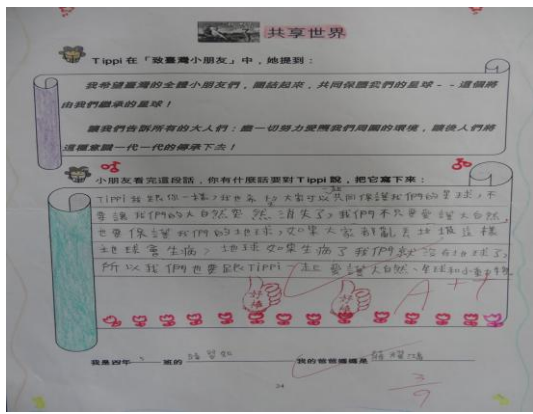 共享世界
Tippi 在「致臺灣小朋友」中，她提到：
我希望臺灣的全體小朋友們，團結起來，共同保護我們的星球--這個將
由我們繼承的星球！
讓我們告訴所有的大人們：盡一切努力愛護我們周圍的環境，讓後人們將
這種意識一代一代的傳承下去！
小朋友看完這段話，你有什麼話要對Tippi 說，把它寫下來：
Tippi我跟你一樣，我也希望大家可以一起共同保護我們的星球，不
要讓我們的大自然突然消失了，我們不只要愛護大自然，
也要保護我們的地球，如果大家都亂丟垃圾這樣
地球會生病，地球如果生病了我們就沒有地球了，
所以我們也要跟Tippi一起愛護大自然、星球和小動物
好棒
好棒
A++
我是四年 3 班的
我的爸爸媽媽是
3/9
24